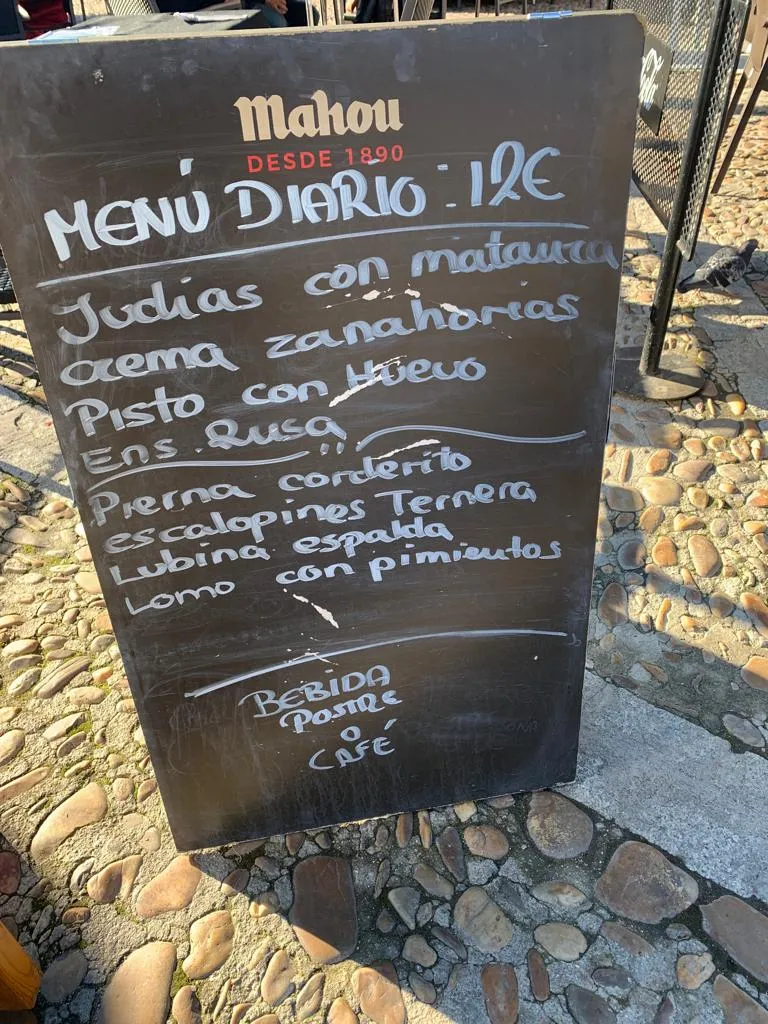 Mahou
DESDE 1890
MENÚ DIARIO : 12€
Judias con matauza
crema zanahorias
Pisto con Huevo
Ens. Rusa
Pierna corderito
escalopines Ternera
Lubina espalda
Lomo con pimientos
BEBIDA
POSTRE
O
CAFÉ